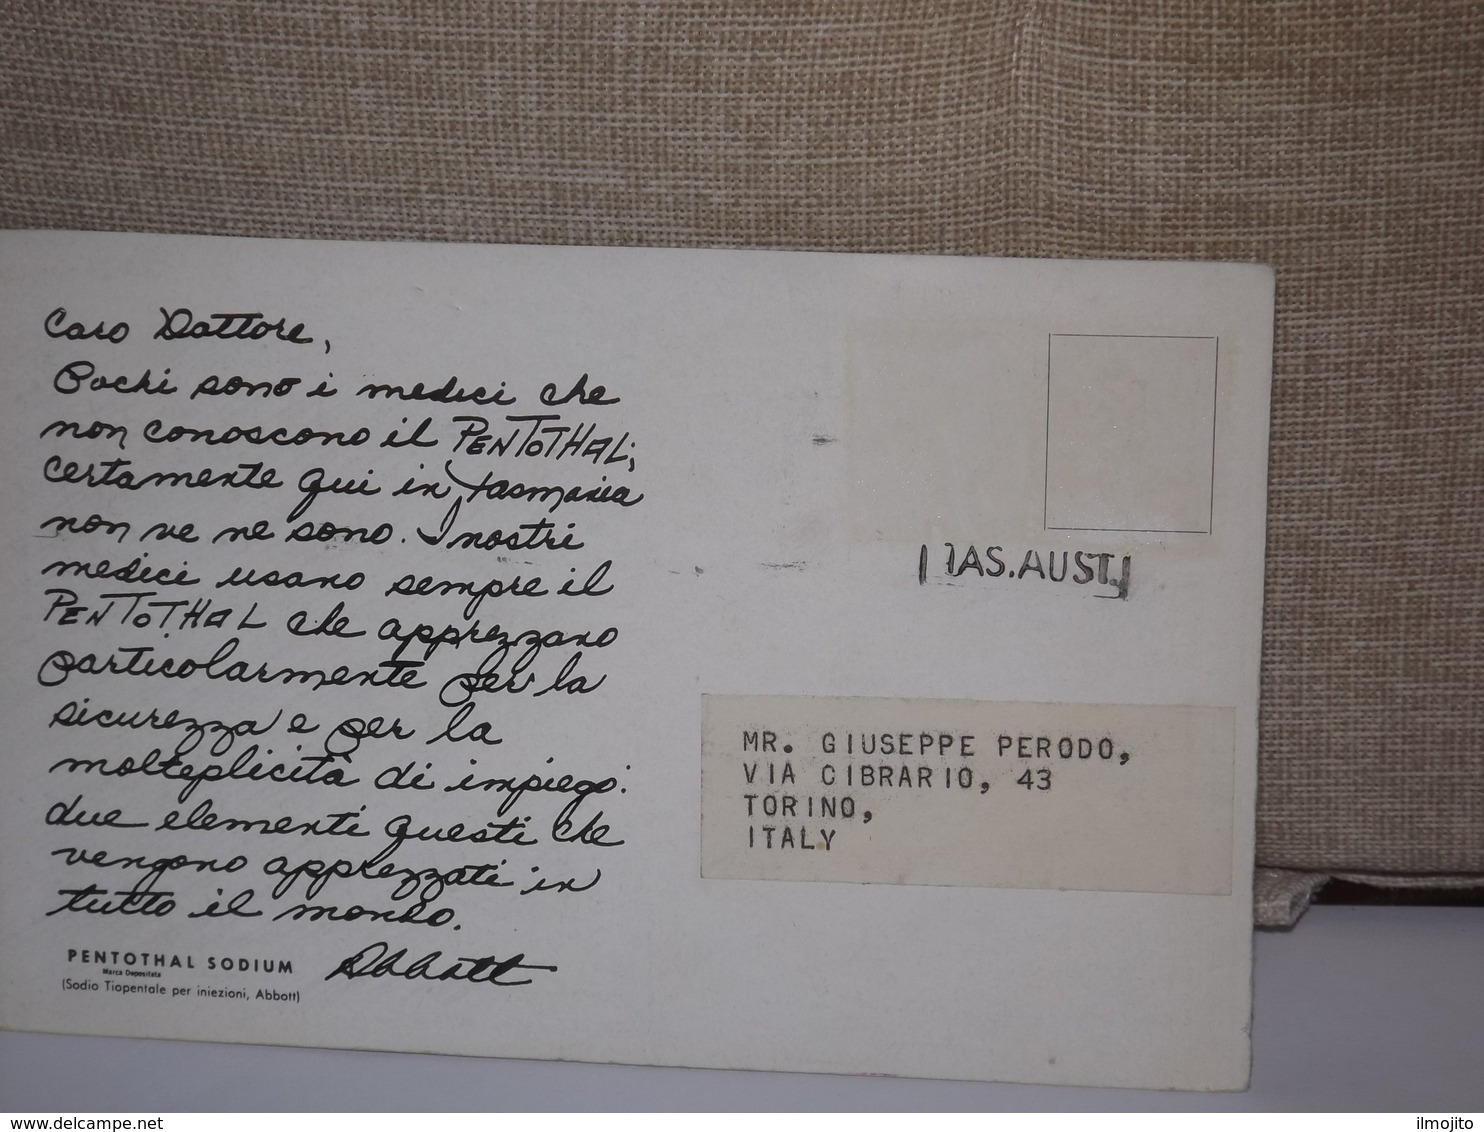 Caro Dottore,
Pochi sono i medici che
non conoscono il PENTOTHAL;
certamente qui in Tasmania
non ve ne sono. I nostri
medici usano sempre il
PENTOTHAL che apprezzano
particolarmente per la
sicurezza e per la
molteplicità di impiego:
due elementi questi che
vengono apprezzati in
tutto il mondo.
Abbott
PENTOTHAL SODIUM
Marca Depositata
(Sodio Tiopentale per iniezioni, Abbott)
TAS. AUST.
MR. GIUSEPPE PERODO,
VIA CIBRARIO, 43
TORINO,
ITALY
www.delcampe.net
ilmojito